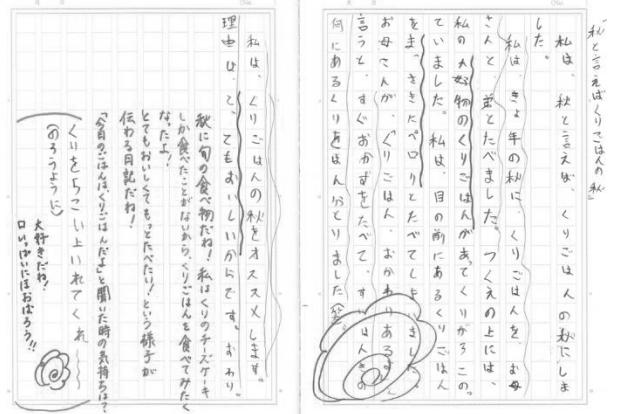 「秋と言えばくりごはんの秋」
私は、秋と言えば、くりごはんの秋にしま
した。
私は、きょ年の秋に、くりごはんを、お母
さんと、並とたべました。つくえの上には、
私の大好物のくりごはんがあてくりがろこの。
ていました。私は、目の前にあるくりごはん
をま、さきにペロリとたべてし
お母さんが、くりごはん、おかわりある
言うと、すぐおかずをたべて、す
何にあるくりをはん
私は、くりごはんの秋をオススメします。
理由は、と、てもおいしいからです。おわり。
秋に旬の食べ物だね!私はくりのチーズケーキ
しか食べたことがないから、くりごはんを食べてみたく
なったよ!
とてもおいしくてもっとたべたい!という様子が
伝わる日記だね!
「今日のごはんは、くりごはんだよ」と聞いた時の気持ちは?
くりをちこい上いれてくれ〜
(のろうように)
大好きだね!
口いっぱいにほおばろう!!